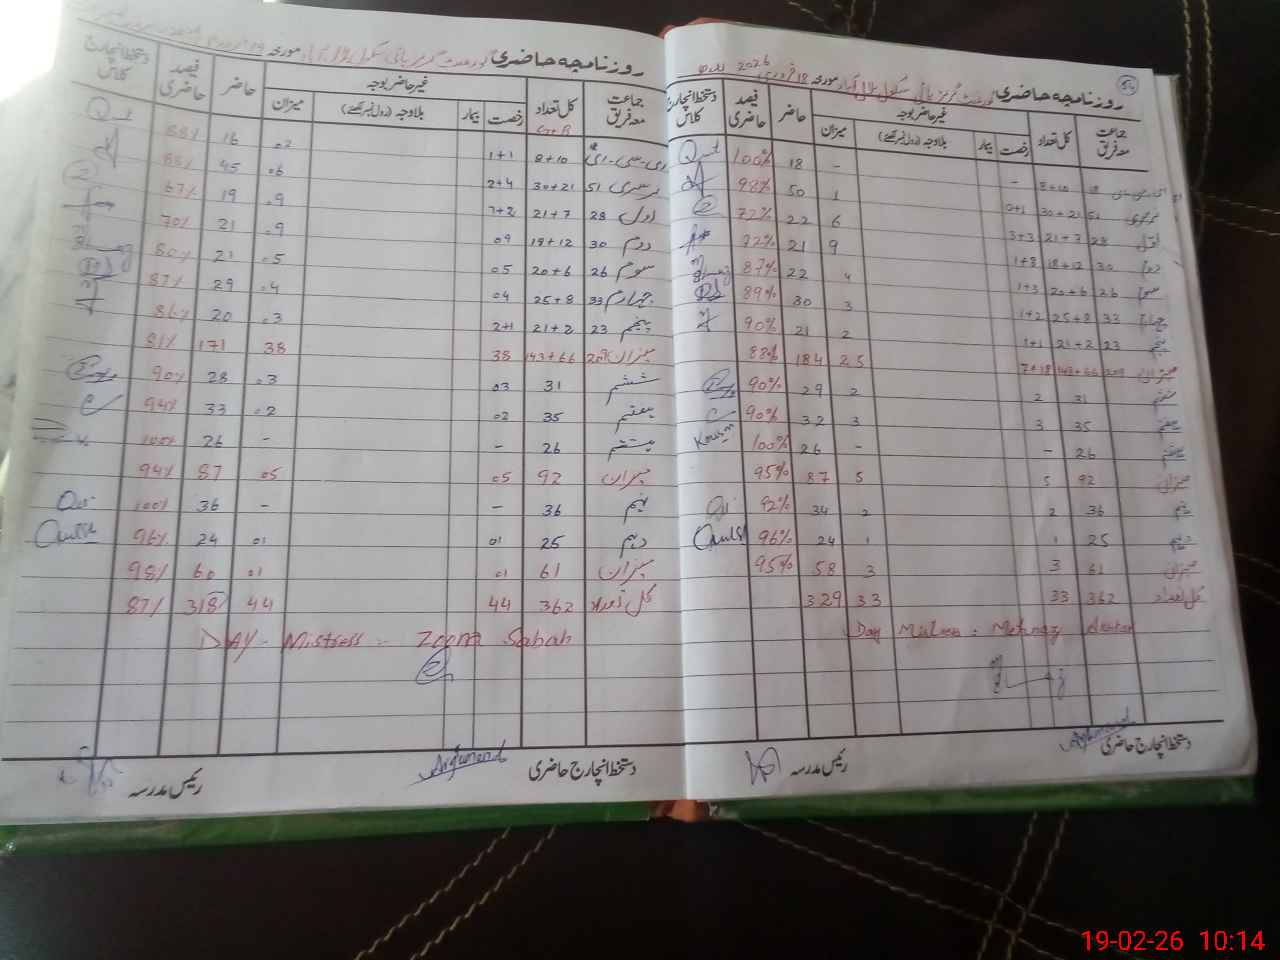 روزنامچہ حاضری گورنمنٹ گرلز ہائی سکول بلال آباد مورخہ 18 فروری 2026
جماعت معہ فریق | کل تعداد | غیر حاضر بوجہ | رخصت | بیمار | بلاوجہ (رول نمبر لکھئے) | میزان | حاضر | فیصد حاضری | دستخط انچارج کلاس
18 | 8+10 | - | - | 18 | 100%
نرسری 51 | 30+21 | 0+1 | 1 | 50 | 98%
اول 28 | 21+7 | 3+3 | 6 | 22 | 72%
دوم 30 | 18+12 | 1+8 | 9 | 21 | 72%
سوم 26 | 20+6 | 1+3 | 4 | 22 | 87%
چہارم 33 | 25+8 | 1+2 | 3 | 30 | 89%
پنجم 23 | 21+2 | 1+1 | 2 | 21 | 90%
میزان 209 | 143+66 | 7+18 | 25 | 184 | 88%
ششم | 31 | 2 | 2 | 29 | 90%
ہفتم | 35 | 3 | 3 | 32 | 90%
ہشتم | 26 | - | - | 26 | 100%
میزان | 92 | 5 | 5 | 87 | 95%
نہم | 36 | 2 | 2 | 34 | 92%
دہم | 25 | 1 | 1 | 24 | 96%
میزان | 61 | 3 | 3 | 58 | 95%
کل تعداد | 362 | 33 | 33 | 329
Day Mistress :
دستخط انچارج حاضری
رئیس مدرسہ
روزنامچہ حاضری گورنمنٹ گرلز ہائی سکول بلال آباد مورخہ 19 فروری
جماعت معہ فریق | کل تعداد | غیر حاضر بوجہ | رخصت | بیمار | بلاوجہ (رول نمبر لکھئے) | میزان | حاضر | فیصد حاضری | دستخط انچارج کلاس
G+B
ای-سی-ای 18 | 8+10 | 1+1 | 02 | 16 | 88%
نرسری 51 | 30+21 | 2+4 | 06 | 45 | 88%
اول 28 | 21+7 | 7+2 | 09 | 19 | 67%
دوم 30 | 18+12 | 09 | 09 | 21 | 70%
سوم 26 | 20+6 | 05 | 05 | 21 | 80%
چہارم 33 | 25+8 | 04 | 04 | 29 | 87%
پنجم 23 | 21+2 | 2+1 | 03 | 20 | 86%
میزان 209 | 143+66 | 38 | 38 | 171 | 81%
ششم | 31 | 03 | 03 | 28 | 90%
ہفتم | 35 | 02 | 02 | 33 | 94%
ہشتم | 26 | - | - | 26 | 100%
میزان | 92 | 05 | 05 | 87 | 94%
نہم | 36 | - | - | 36 | 100%
دہم | 25 | 01 | 01 | 24 | 96%
میزان | 61 | 01 | 01 | 60 | 98%
کل تعداد | 362 | 44 | 44 | 318 | 87%
DAY - Mistress :- Zoona Sabah
دستخط انچارج حاضری
رئیس مدرسہ
19-02-26 10:14